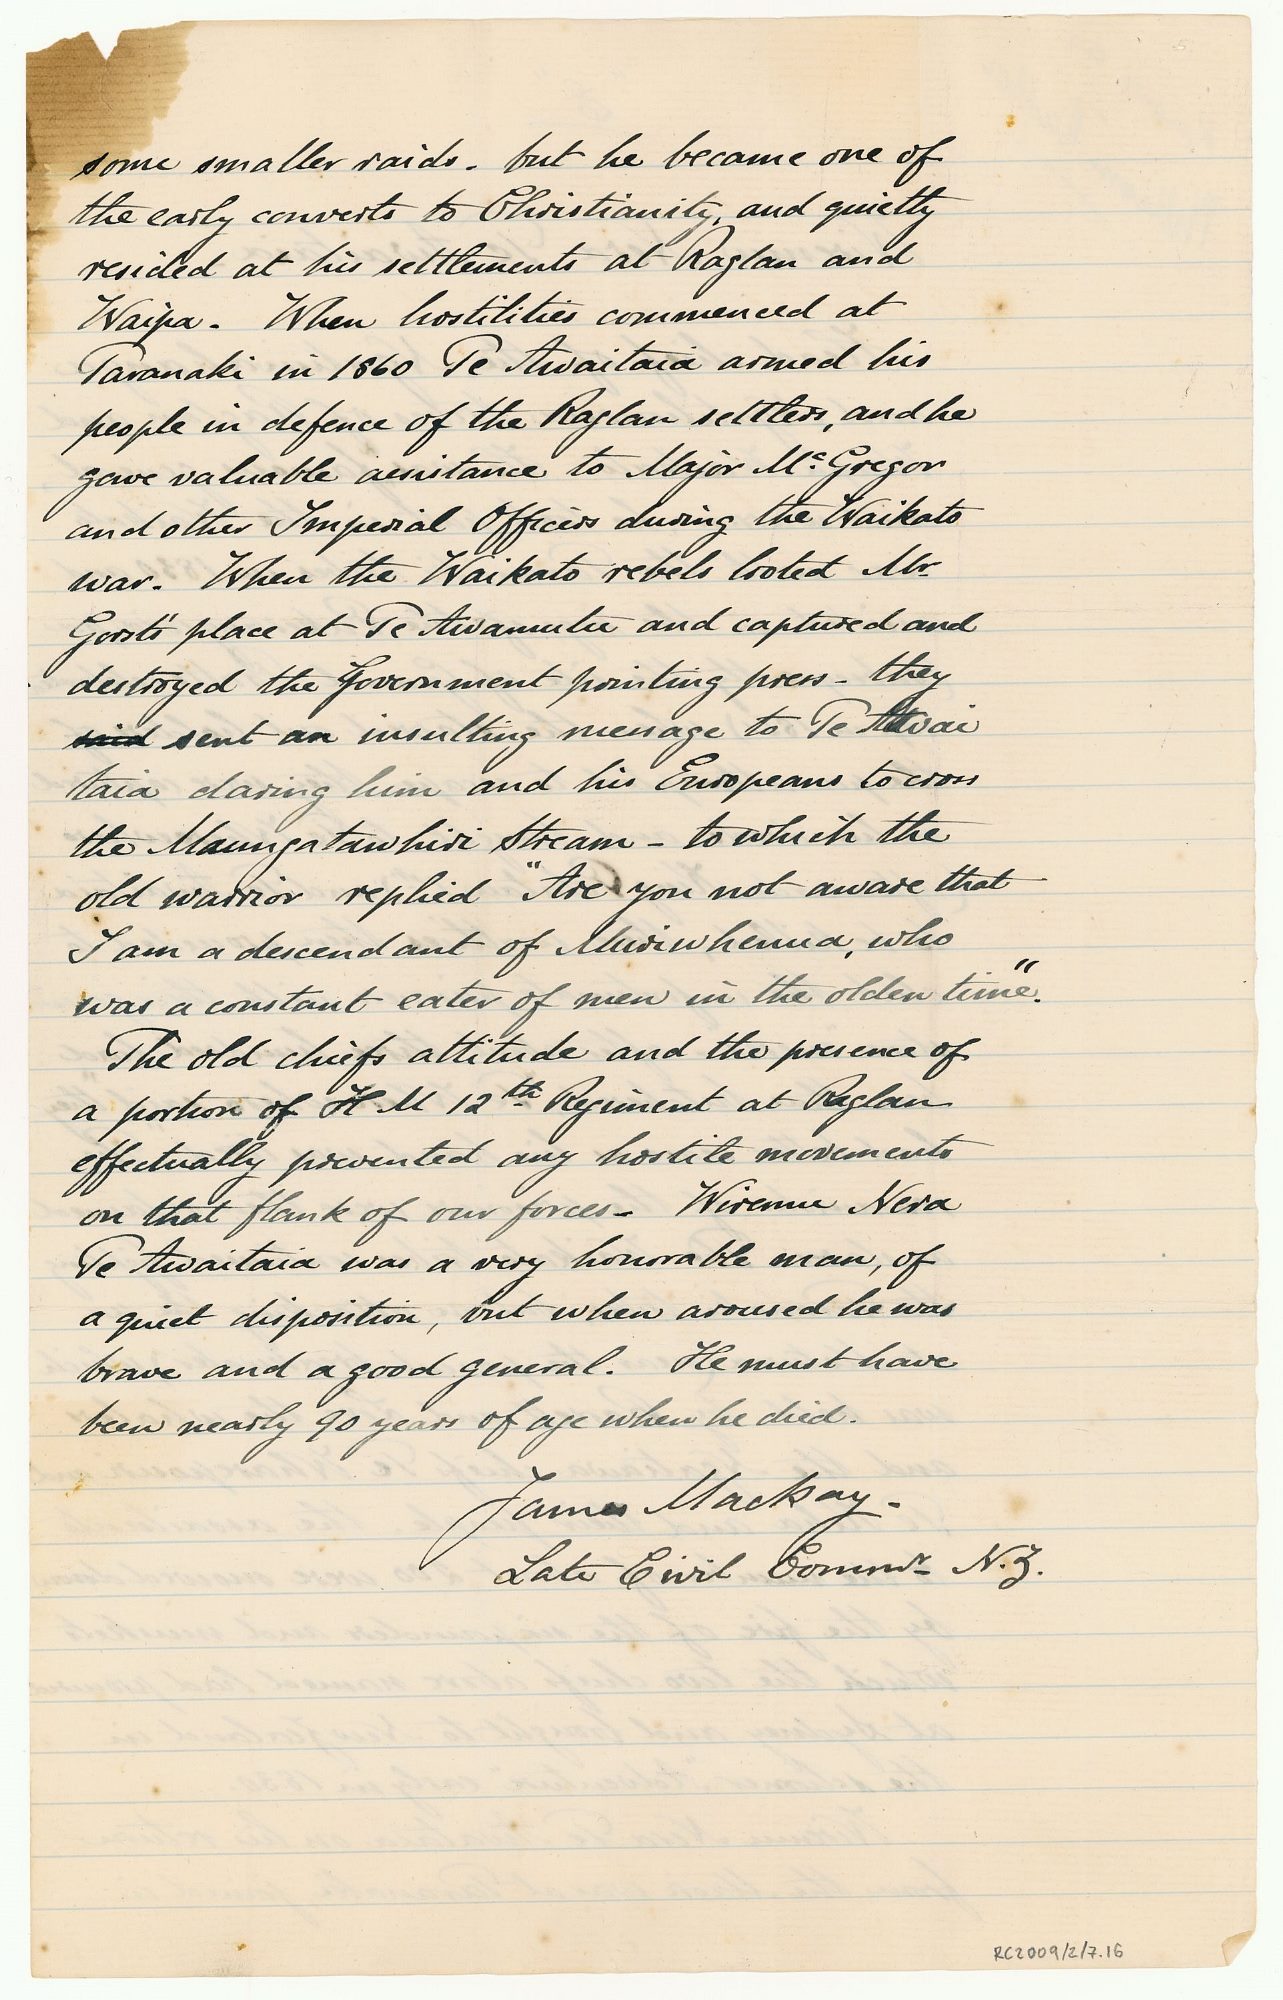 some smaller raids. but he became one of
the early converts to Christianity, and quietly
resided at his settlements at Raglan and
Waipa. When hostilities commenced at
Taranaki in 1860 Te Awaitaia armed his
people in defence of the Raglan settlers, and he
gave valuable assistance to Major Mc. Gregor
and other Imperial Officers during the Waikato
war. When the Waikato rebels looted Mr.
Gorsts' place at Te Awamutu and captured and
destroyed the Government printing press - they
said sent an insulting message to Te Awai
taia daring him and his Europeans to cross
the Maungatawhiri Stream - to which the
old warrior replied "Are you not aware that
I am a descendant of Miriwhenua, who
was a constant eater of men in the olden time".
The old chiefs attitude and the presence of
a portion of H M 12th Regiment at Raglan
effectually prevented any hostile movements
on that flank of our forces - Wiremu Nera
Te Awaitaia was a very honorable man, of
a quiet disposition, but when aroused he was
brave and a good general. He must have
been nearly 90 years of age when he died.
James Mackay -
Late Civil Commr. N.Z.
RC2009/2/7.16